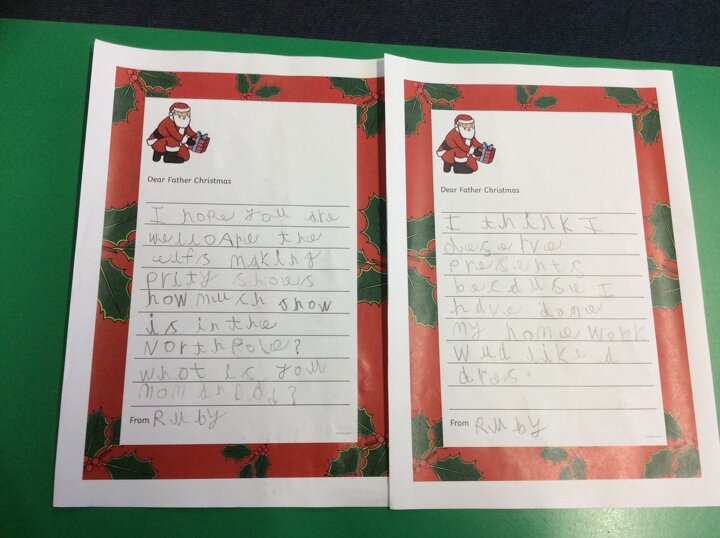 Dear Father Christmas
I hope you are
well○Are the
elfs making
prity shoes
how much snow
is in the
North Pole?
what is you
From Ruby
Dear Father Christmas
I think I
deserve
presents
because I
have done
my home work
wud like a
dres.
From Ruby